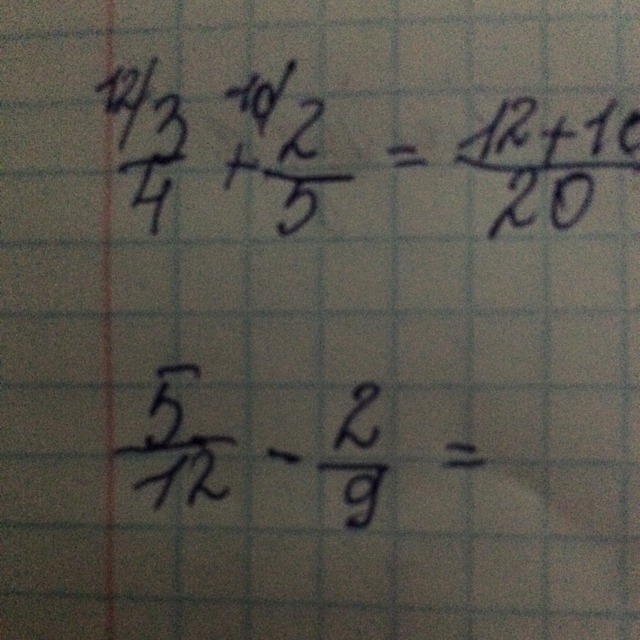 12/ 3/4 + 10/ 2/5 = 12+10/20
5/12 - 2/9 =